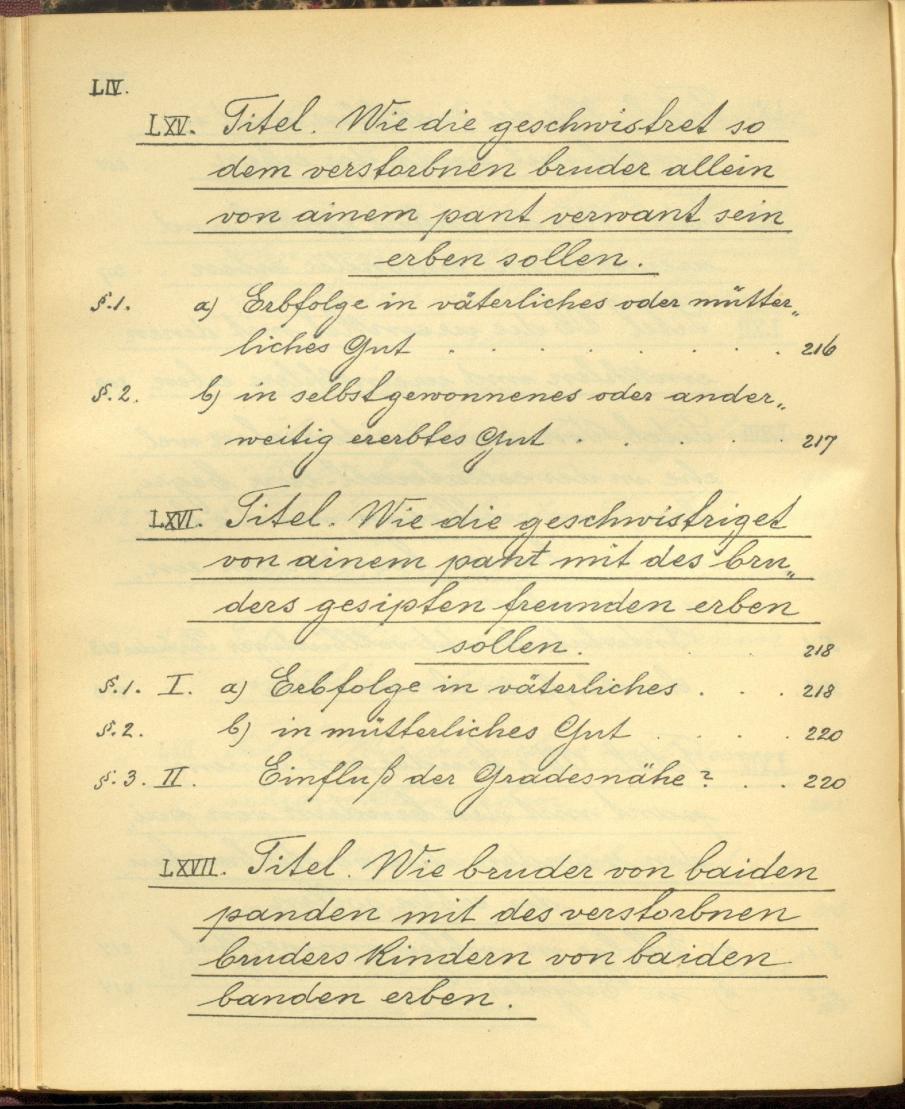 LIV.
LXV. Titel. Wie die geschwistret so
dem verstorbnen bruder allein
von ainem pant verwant sein
erben sollen.
§.1. a) Erbfolge in väterliches oder mütter„
liches Gut . . . . . . . . . 216
§.2. b) in selbstgewonnenes oder ander„
weitig ererbtes Gut . . . . 217
LXVI. Titel. Wie die geschwistriget
von ainem pant mit des bru„
ders gesipten freunden erben
sollen. . . . 218
§.1. I. a) Erbfolge in väterliches . . . 218
§.2. b) in mütterliches Gut . . . . 220
§.3. II. Einfluß der Gradesnähe? . . . 220
LXVII. Titel. Wie bruder von baiden
panden mit des verstorbnen
bruders kindern von baiden
banden erben.